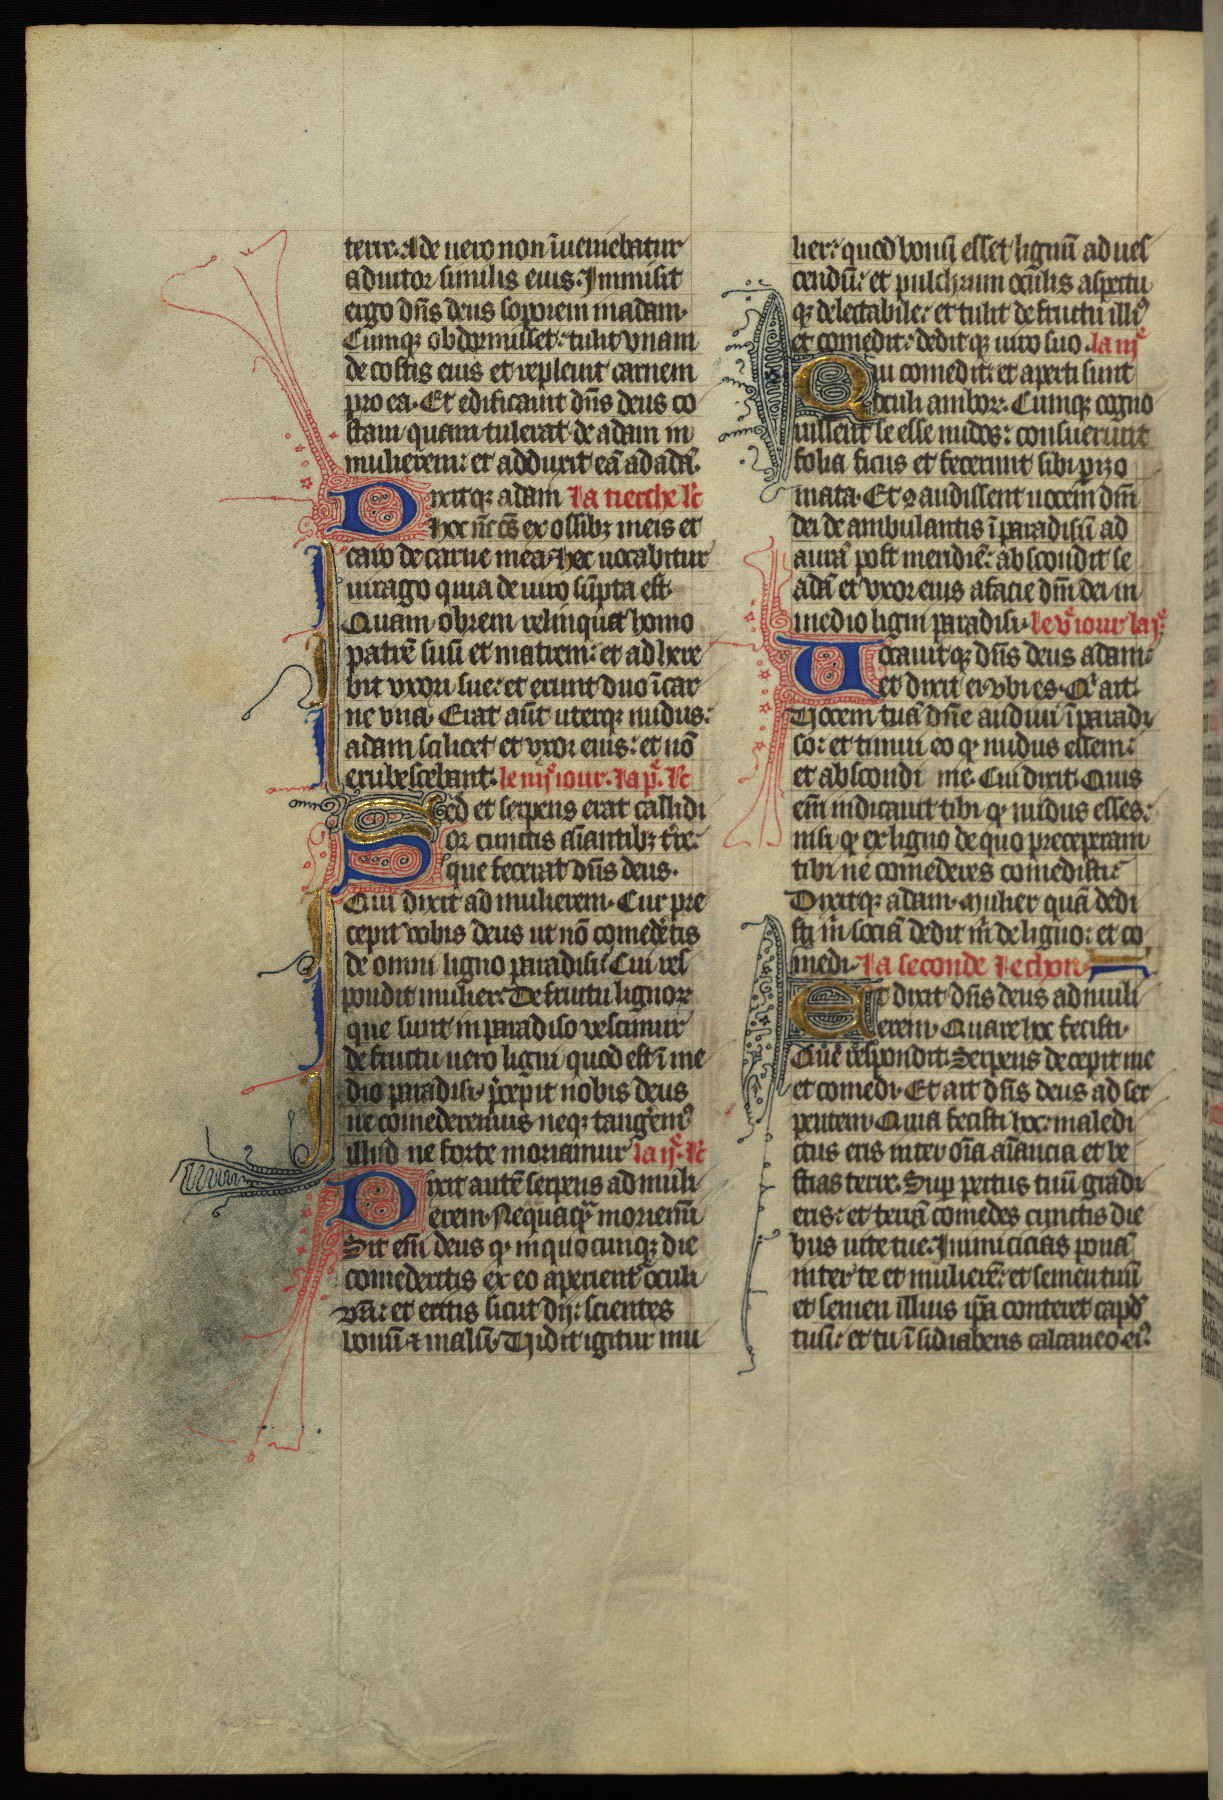 terre. Ade uero non īueniebatur
adiutor similis eius. Immisit
ergo dn̄s deus soporem in adam.
Cumqꝫ obdormisset: tulit vnam
de costis eius et repleuit carnem
pro ea. Et edificauit dn̄s deus co
stam quam tulerat de adam in
mulierem: et adduxit eā ad adā.
Dixitqꝫ adam la tierche lc̄
hoc nūc os ex ossibꝫ meis et
caro de carne mea. hec uocabitur
uirago quia de uiro sūpta est.
Quam obrem relinquet homo
patrē suū et matrem: et adhere
bit vxori sue: et erunt duo ī car
ne vna. Erat aūt uterqꝫ nudus:
adam scilicet et vxor eius: et nō
erubescebant. le iiijͤ iour. la pͤ. lc̄
Sed et serpens erat callidi
or cunctis aīantibꝫ t̄re:
que fecerat dn̄s deus.
Qui dixit ad mulierem. Cur pre
cepit vobis deus ut nō comed̄etis
de omni ligno paradisi: Cui res
pondit mulier. De fructu lignoꝝ
que sunt in paradiso vescimur
de fructu uero ligni quod est ī me
dio paradisi. p̄cepit nobis deus
ne comederemus neqꝫ tanḡemꝰ
illud ne forte moriamur la ijͤ. lc̄
Dixit autē serpens ad muli
erem. Nequaqͣꝫ moriemī
Scit enī deus ꝙ in quocunqꝫ die
comederitis ex eo aperientͬ oculi
vr̄i: et eritis sicut dij: scientes
bonū ⁊ malū. Vidit igitur mu
lier: quod bonū esset lignū ad ues
cendū: et pulchrum oculis aspectu
qꝫ delectabile: et tulit de fructu illiꝰ
et comedit: deditqꝫ uiro suo. la iijͤ
Qui comedit: et aperti sunt
oculi amboꝝ. Cumqꝫ cogno
uissent se esse nudos: consuerunt
folia ficus et fecerunt sibi perizo
mata. Et ꝯ audissent uocem dn̄i
dei deambulantis ī paradisū ad
aurā post meridiē: abscondit se
adā et vxor eius a facie dn̄i dei in
medio ligni paradisi. le vͤ iour la pͤ:
Uocauitqꝫ dn̄s deus adam:
et dixit ei vbi es. Qͥ ait.
Vocem tuā dn̄e audiui ī paradi
so: et timui eo ꝙ nudus essem:
et abscondi me. Cui dixit. Quis
enī indicauit tibi ꝙ nudus esses:
nisi ꝙ ex ligno de quo preceperam
tibi ne comederes comedisti:
Dixitqꝫ adam. Mulier quā dedi
sti m̄ sociā dedit m̄ de ligno: et co
medi. la seconde lechon.
Et dixit dn̄s deus ad muli
erem. Quare hoc fecisti.
Que respondit. Serpens decepit me
et comedi. Et ait dn̄s deus ad ser
pentem. Quia fecisti hoc: maledi
ctus eris inter oīa aīancia et be
stias terre. Sup pectus tuū gradi
eris: et terrā comedes cunctis die
bus uite tue. Inimicicias ponā
inter te et mulierē: et semen tuū
et semen illius ip̄a conteret capd̄
tuū: et tu īsidiaberis calcaneo eiꝰ.